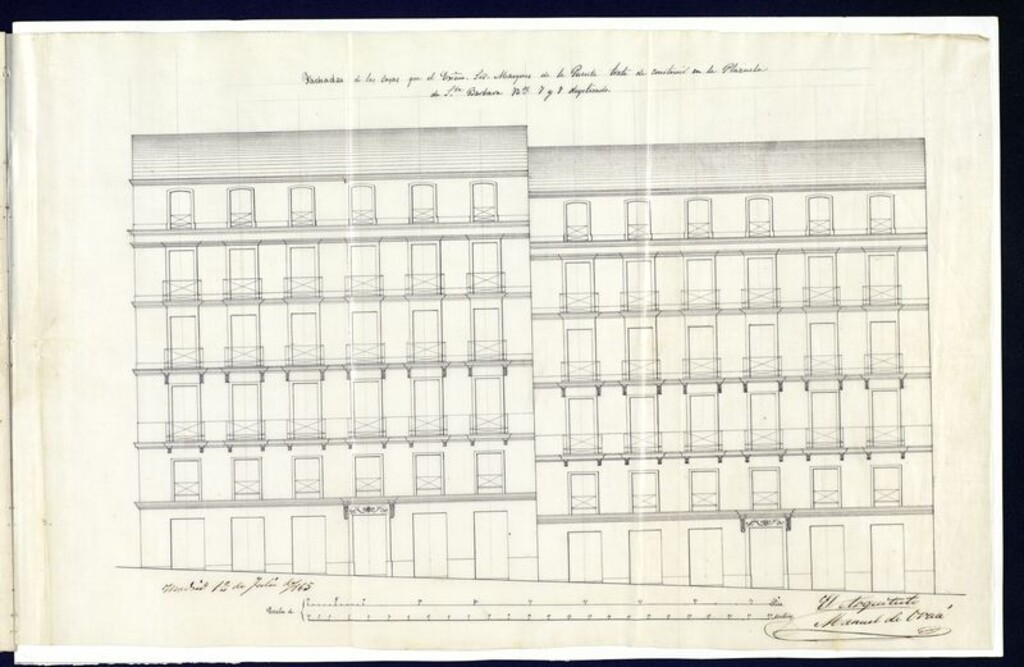 Fachadas de las casas que el Excmo. Sor. Marques de la Puente trata de construir en la Plazuela
de Sta. Barbara Nos. 7 y 7 duplicado.
Madrid 1º de Julio
Escala de
Pies
El Arquitecto
Manuel de